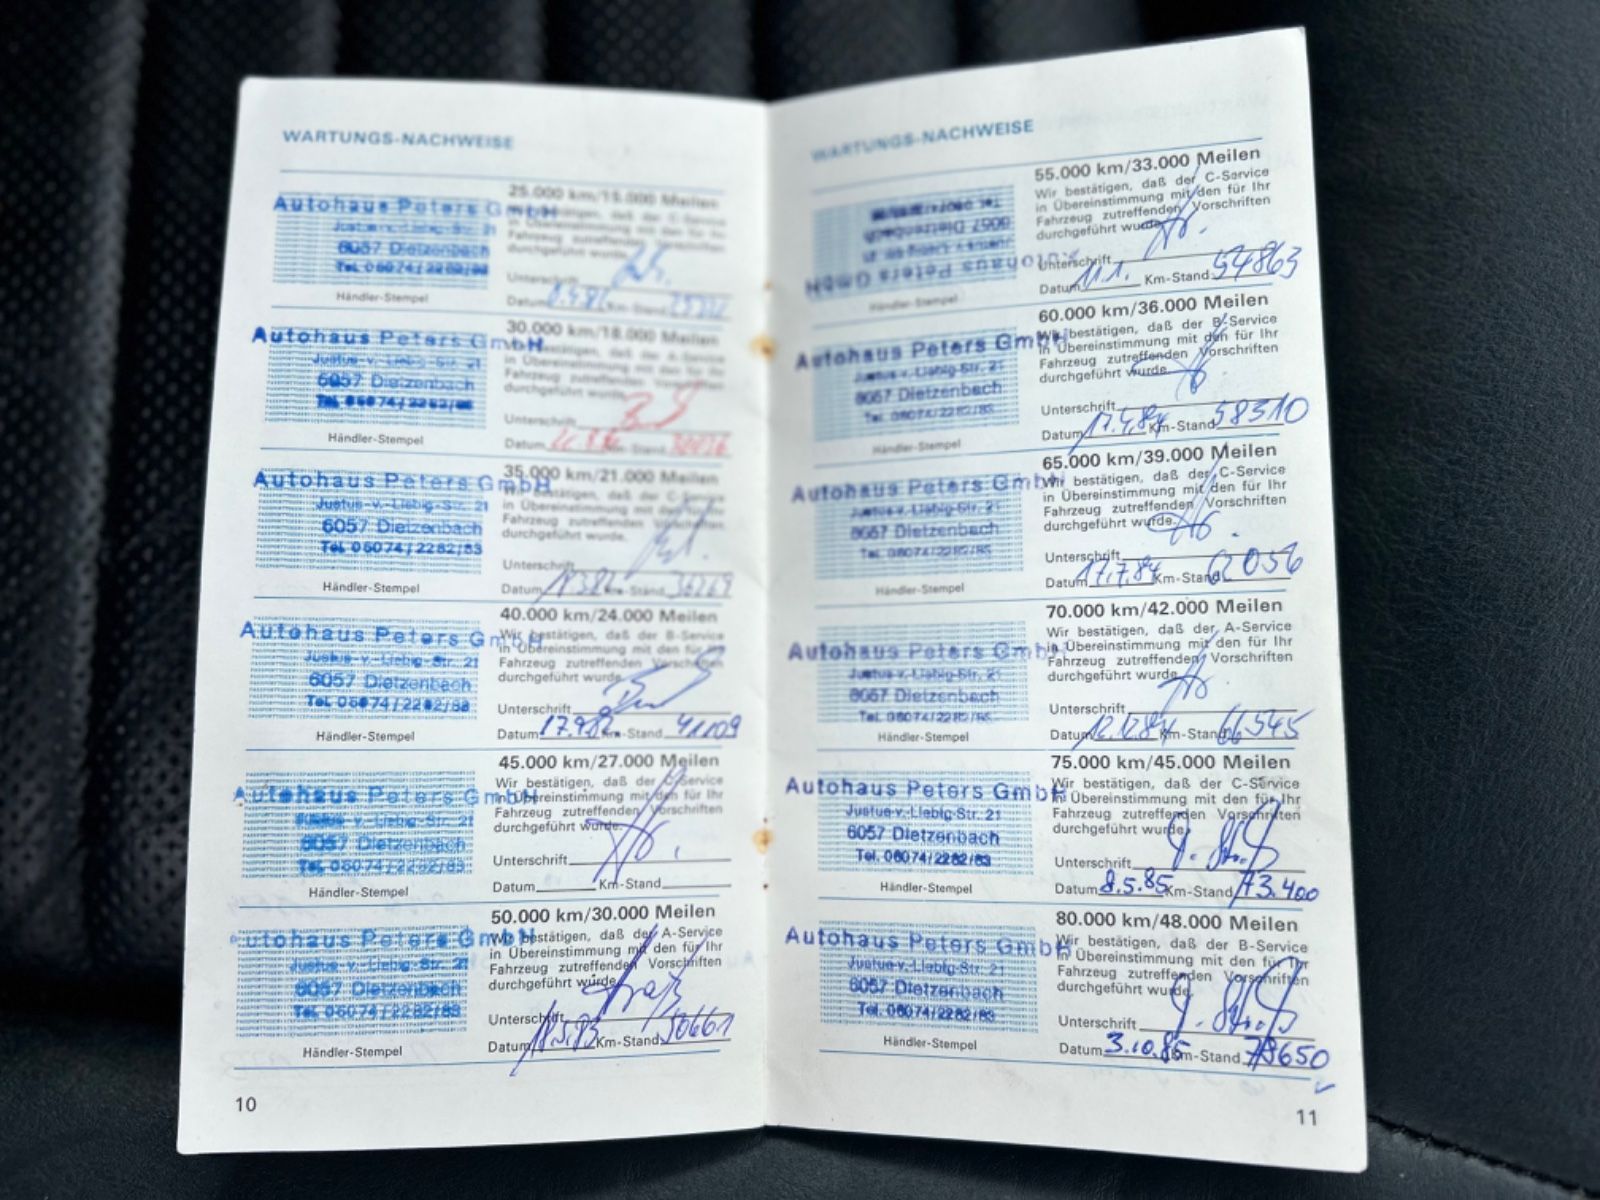 WARTUNGS-NACHWEISE
Autohaus Peters GmbH
Justus-v.-Liebig-Str. 21
6057 Dietzenbach
Tel. 06074/2282/83
Händler-Stempel
25.000 km/15.000 Meilen
Wir bestätigen, daß der C-Service
in Übereinstimmung mit den für Ihr
Fahrzeug zutreffenden Vorschriften
durchgeführt wurde.
Unterschrift
Datum Km-Stand
Autohaus Peters GmbH
Justus-v.-Liebig-Str. 21
6057 Dietzenbach
Tel. 06074/2282/83
Händler-Stempel
30.000 km/18.000 Meilen
Wir bestätigen, daß der A-Service
in Übereinstimmung mit den für Ihr
Fahrzeug zutreffenden Vorschriften
durchgeführt wurde.
Unterschrift
Datum Km-Stand
Autohaus Peters GmbH
Justus-v.-Liebig-Str. 21
6057 Dietzenbach
Tel. 06074/2282/83
Händler-Stempel
35.000 km/21.000 Meilen
Wir bestätigen, daß der C-Service
in Übereinstimmung mit den für Ihr
Fahrzeug zutreffenden Vorschriften
durchgeführt wurde.
Unterschrift
Datum Km-Stand 36269
Autohaus Peters GmbH
Justus-v.-Liebig-Str. 21
6057 Dietzenbach
Tel. 06074/2282/83
Händler-Stempel
40.000 km/24.000 Meilen
Wir bestätigen, daß der B-Service
in Übereinstimmung mit den für Ihr
Fahrzeug zutreffenden Vorschriften
durchgeführt wurde.
Unterschrift
Datum 17.9.82 Km-Stand 41109
Autohaus Peters GmbH
Justus-v.-Liebig-Str. 21
6057 Dietzenbach
Tel. 06074/2282/83
Händler-Stempel
45.000 km/27.000 Meilen
Wir bestätigen, daß der C-Service
in Übereinstimmung mit den für Ihr
Fahrzeug zutreffenden Vorschriften
durchgeführt wurde.
Unterschrift
Datum Km-Stand
Autohaus Peters GmbH
Justus-v.-Liebig-Str. 21
6057 Dietzenbach
Tel. 06074/2282/83
Händler-Stempel
50.000 km/30.000 Meilen
Wir bestätigen, daß der A-Service
in Übereinstimmung mit den für Ihr
Fahrzeug zutreffenden Vorschriften
durchgeführt wurde.
Unterschrift
Datum 18.5.83 Km-Stand 50661
10
WARTUNGS-NACHWEISE
Autohaus Peters GmbH
Justus-v.-Liebig-Str. 21
6057 Dietzenbach
Tel. 06074/2282/83
Händler-Stempel
55.000 km/33.000 Meilen
Wir bestätigen, daß der C-Service
in Übereinstimmung mit den für Ihr
Fahrzeug zutreffenden Vorschriften
durchgeführt wurde.
Unterschrift
Datum 11.1. Km-Stand 54863
Autohaus Peters GmbH
Justus-v.-Liebig-Str. 21
6057 Dietzenbach
Tel. 06074/2282/83
Händler-Stempel
60.000 km/36.000 Meilen
Wir bestätigen, daß der B-Service
in Übereinstimmung mit den für Ihr
Fahrzeug zutreffenden Vorschriften
durchgeführt wurde.
Unterschrift
Datum 17.4.84 Km-Stand 58310
Autohaus Peters GmbH
Justus-v.-Liebig-Str. 21
6057 Dietzenbach
Tel. 06074/2282/83
Händler-Stempel
65.000 km/39.000 Meilen
Wir bestätigen, daß der C-Service
in Übereinstimmung mit den für Ihr
Fahrzeug zutreffenden Vorschriften
durchgeführt wurde.
Unterschrift
Datum 17.7.84 Km-Stand 62056
Autohaus Peters GmbH
Justus-v.-Liebig-Str. 21
6057 Dietzenbach
Tel. 06074/2282/83
Händler-Stempel
70.000 km/42.000 Meilen
Wir bestätigen, daß der A-Service
in Übereinstimmung mit den für Ihr
Fahrzeug zutreffenden Vorschriften
durchgeführt wurde.
Unterschrift
Datum 12.12.84 Km-Stand 66545
Autohaus Peters GmbH
Justus-v.-Liebig-Str. 21
6057 Dietzenbach
Tel. 06074/2282/83
Händler-Stempel
75.000 km/45.000 Meilen
Wir bestätigen, daß der C-Service
in Übereinstimmung mit den für Ihr
Fahrzeug zutreffenden Vorschriften
durchgeführt wurde.
Unterschrift
Datum 8.5.85 Km-Stand 73.400
Autohaus Peters GmbH
Justus-v.-Liebig-Str. 21
6057 Dietzenbach
Tel. 06074/2282/83
Händler-Stempel
80.000 km/48.000 Meilen
Wir bestätigen, daß der B-Service
in Übereinstimmung mit den für Ihr
Fahrzeug zutreffenden Vorschriften
durchgeführt wurde.
Unterschrift
Datum 3.10.85 Km-Stand 78650
11